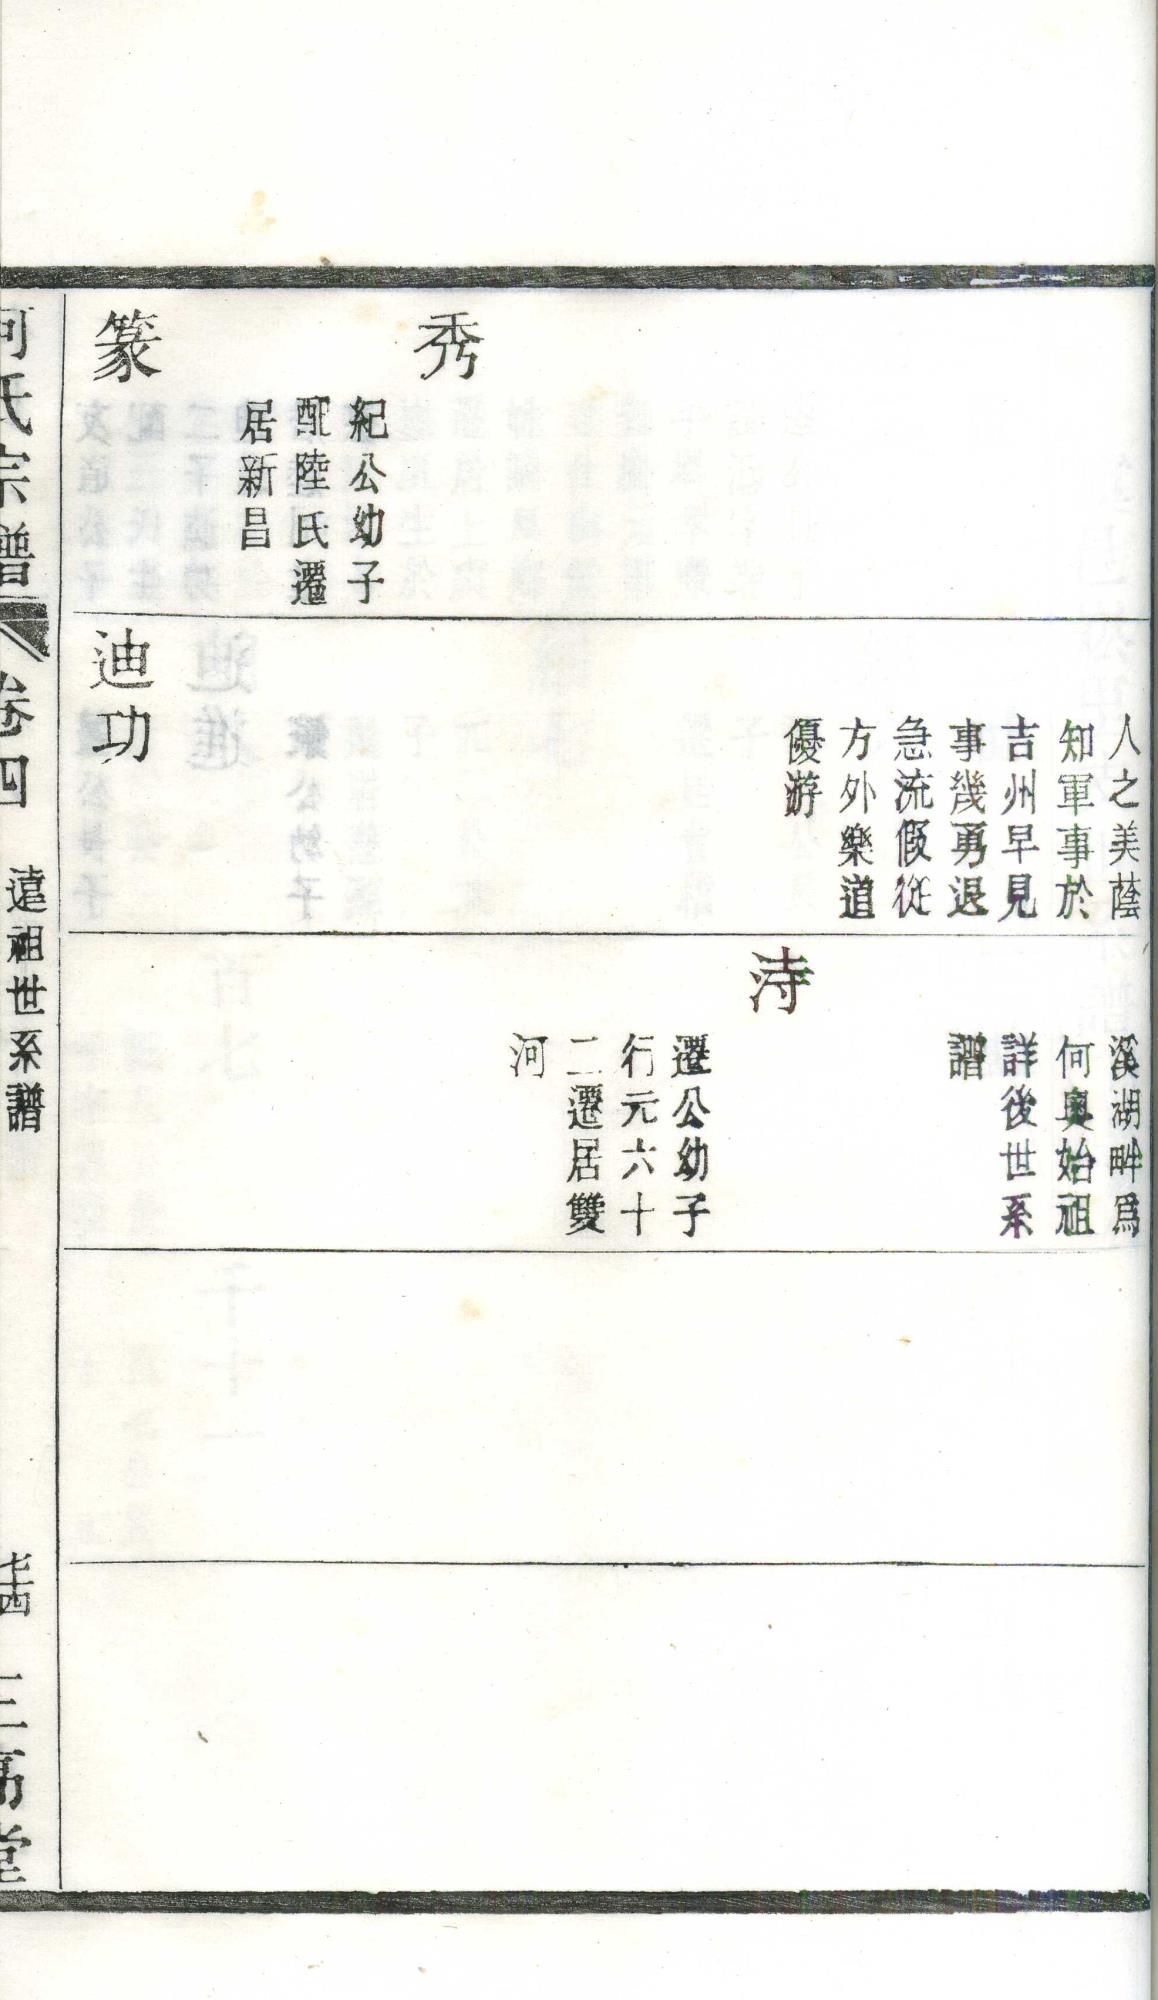 秀
紀公幼子
配陸氏遷
居新昌
篆
人之美蔭
知軍事於
吉州早見
事幾勇退
急流假從
方外樂道
優游
迪功
溪湖畔爲
何奥始祖
詳後世系
譜
洔
遷公幼子
行元六十
二遷居雙
河
何氏宗譜
卷四
遠祖世系譜
七十四
三高堂